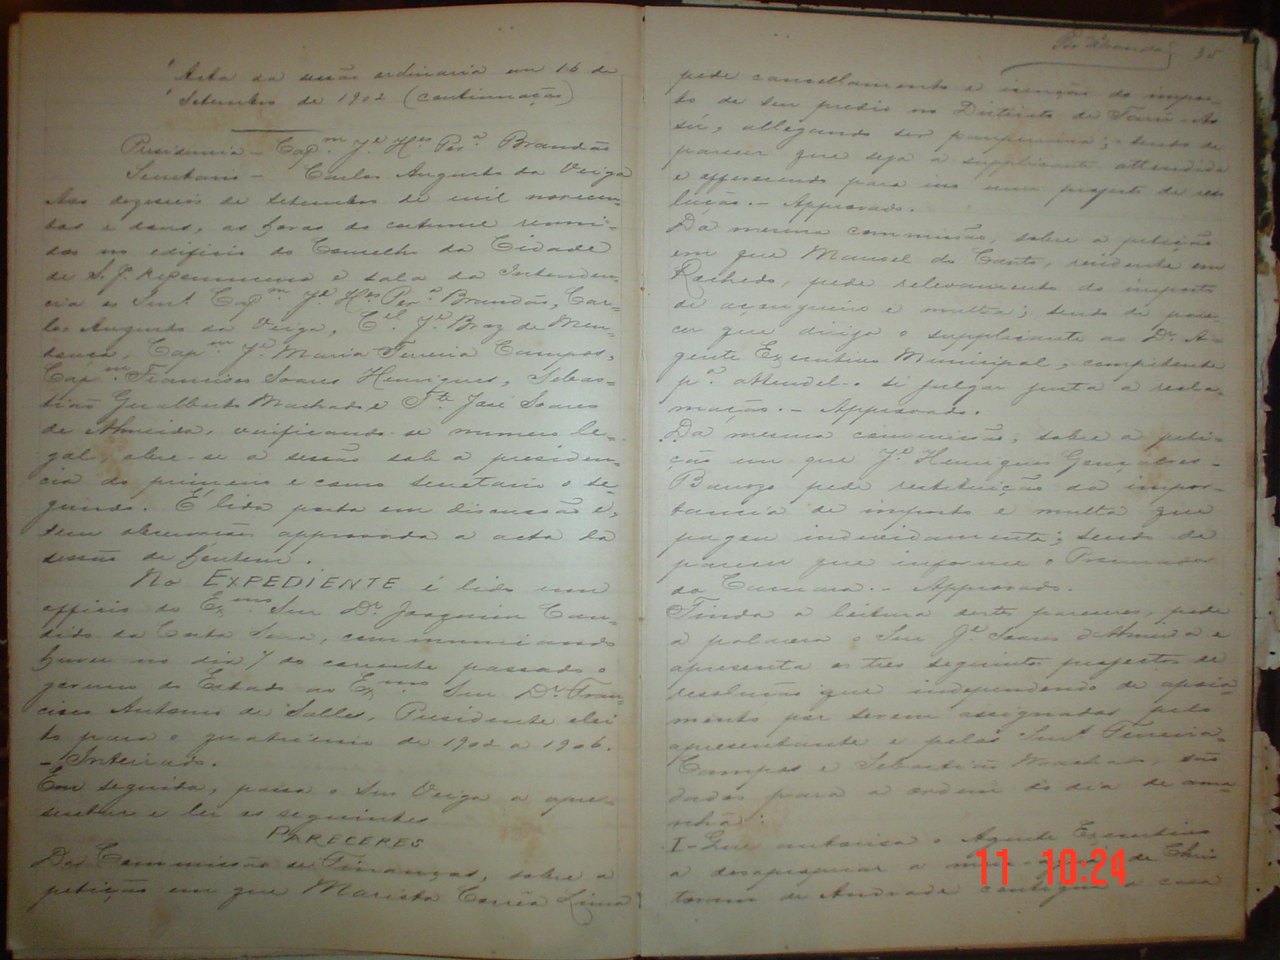 "Acta da sessão ordinaria em 16 de
"Setembro de 1902 (continuação)
Presidencia - Capm. Je. Hes Pera. Brandão
Secretario - Carlos Augusto da Veiga
Aos dezeseis de setembro de mil novecen-
tos e dous, as horas do costume reuni-
dos no edificio do Conselho da Cidade
de S. J. Nepomuceno e sala da Intenden-
cia os Snrs. Capm. Je. Hes Pera. Brandão, Car-
los Augusto da Veiga, Cel. Je. Braz de Men-
donça, Capm. Je. Maria Ferreira Campos,
Capm. Francisco Soares Henriques, Sebas-
tião Gualberto Machado e Tte. José Soares
de Almeida, verificando-se numero le-
gal, abre-se a sessão sob a presiden-
cia do primeiro e como secretario o se-
gundo. É lida posta em discussão e,
sem observação approvada a acta da
sessão de hontem.
No EXPEDIENTE é lido um
officio do Exmo. Snr. Dr. Joaquim Can-
dido da Costa Sena, communicando
haver no dia 7 do corrente passado o
governo do Estado ao Exmo. Snr. Dr. Fran-
cisco Antonio de Salles, Presidente elei
to para o quatriennio de 1902 a 1906.
- Inteirado.
Em seguida, passa o Snr. Veiga a apre-
sentar e ler os seguintes
PARECERES
Da Commissão de Finanças, sobre a
petição em que Corrêa Lima
35
pede cancellamento e isenção do impos-
to de seu predio no Districto de
allegando ser sendo de
parecer que seja a supplicante attendida
e offerecendo para isso um projecto de reso
lução. - Approvado.
Da mesma commissão, sobre a petição
em que Manoel do Canto, residente em
Rochedo, pede relevamento do imposto
de açougueiro e multa; sendo de pare-
cer que dirija o supplicante ao Dr. A-
gente Executivo Municipal, competente
pa. attendel-o si julgar justa a recla-
mação. - Approvado.
Da mesma commissão, sobre a peti-
ção em que Je. Henriques Gonsalves
Barrozo pede restituição da impor-
tancia de imposto e multa que
pagou indevidamente; sendo de
parecer que informe o Procurador
da Camara. - Approvado.
Finda a leitura destes pareceres, pede
a palavra o Snr. Je. Soares d'Almeida e
apresenta os tres seguintes projectos de
resolução que independendo de apoia-
mento por serem assignados pelo
apresentante e pelos Snrs. Ferreira
Campos e Sebastião Machado, são
dados para a ordem do dia de ama-
nhã:
I - Que autorisa o Agente Executivo
a desapropriar a de Chris
tovam de Andrade contigua a casa
11 10:24